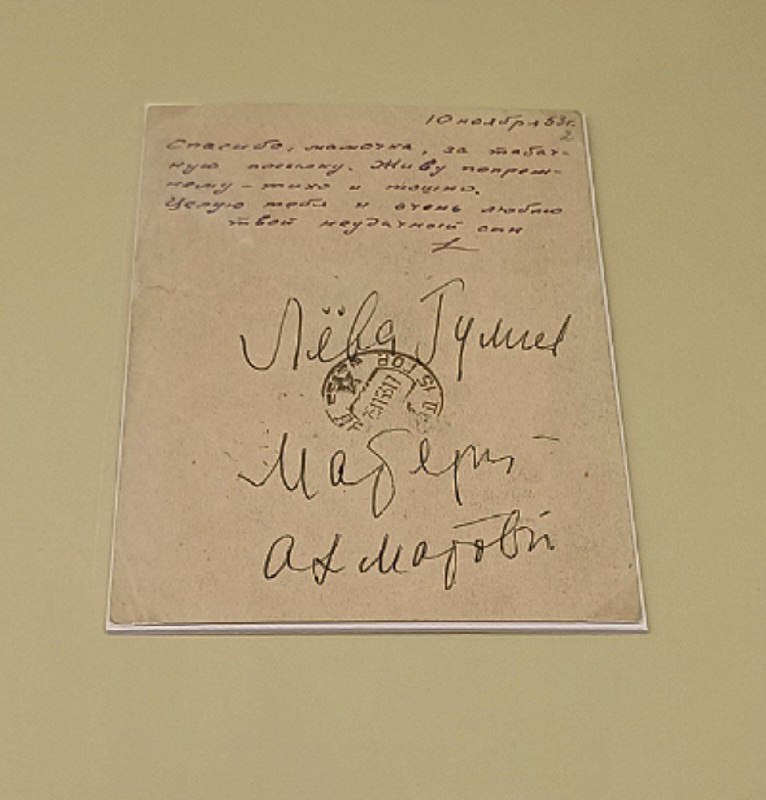 10 ноября 53 г.
2
Спасибо, мамочка, за табач-
ную посылку. Живу попреж-
нему – тихо и тошно.
Целую тебя и очень люблю
твой неудачный сын
L
Лёва Гумил
Матери
Ахматовой